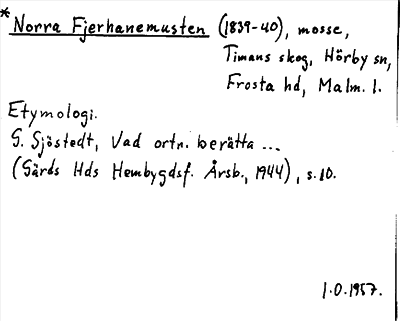 * Norra Fjerhanemusten (1839-40), mosse,
Timans skog, Hörby sn,
Frosta hd, Malm. l.
Etymologi.
G. Sjöstedt, Vad ortn. berätta ...
(Gärds Hds Hembygdsf. Årsb., 1944), s. 10.
1.0.1957.